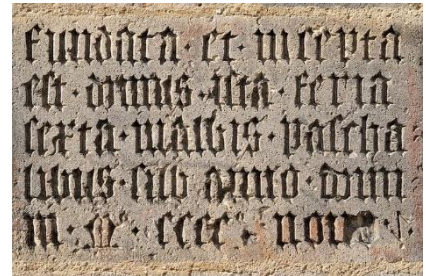 fundata · et · incepta
est · domus · ista · feria
sexta · in albis · pascha
libus · sub anno · dom
m · cccc · non